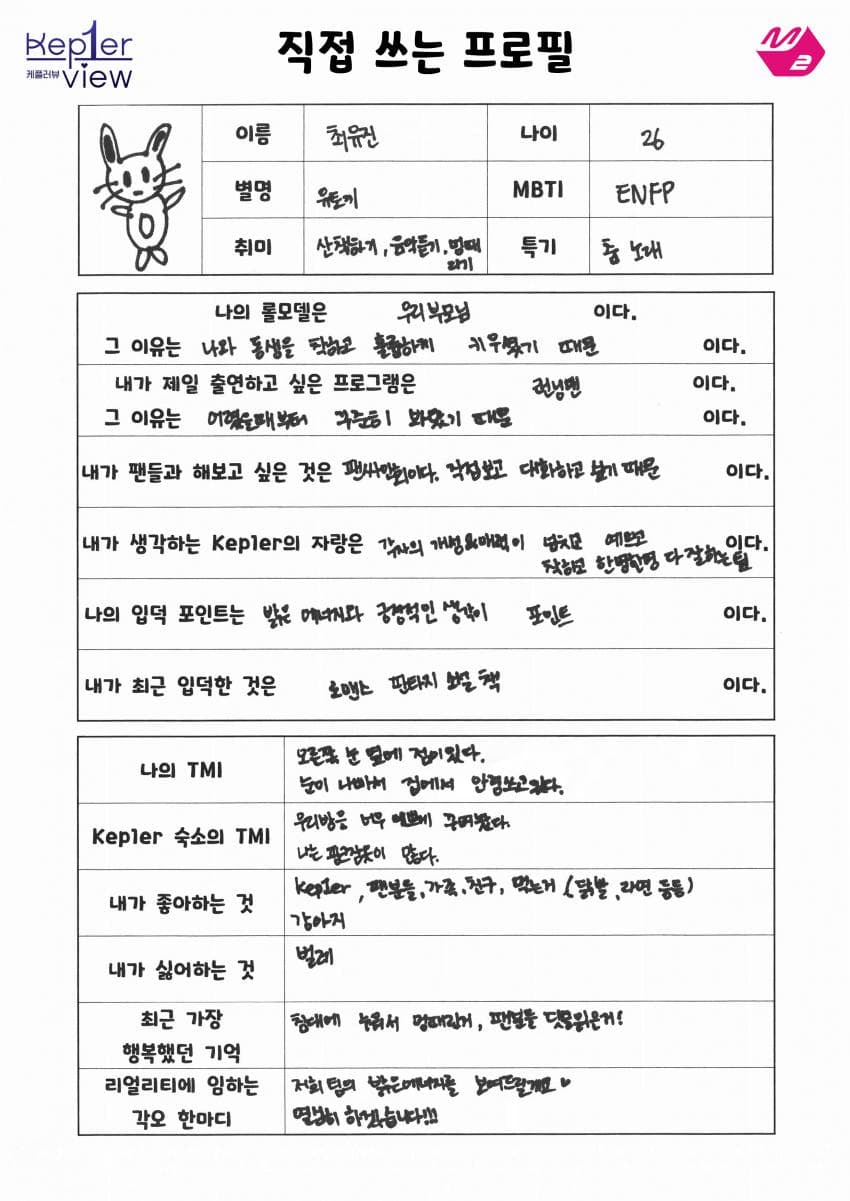 Kep1er
케플러뷰 view
직접 쓰는 프로필
M2
이름 최유진 나이 26
별명 유토끼 MBTI ENFP
취미 산책하기, 음악듣기, 멍때
리기 특기 춤 노래
나의 롤모델은 우리부모님 이다.
그 이유는 나와 동생을 착하고 훌륭하게 키우셨기 때문 이다.
내가 제일 출연하고 싶은 프로그램은 런닝맨 이다.
그 이유는 어렸을때부터 꾸준히 봐왔기 때문 이다.
내가 팬들과 해보고 싶은 것은 팬싸인회이다. 직접보고 대화하고 싶기 때문 이다.
내가 생각하는 Kep1er의 자랑은 각자의 개성&매력이 넘치고 예쁘고 이다.
착하고 한명한명 다 잘하는 팀
나의 입덕 포인트는 밝은 에너지와 긍정적인 생각이 포인트 이다.
내가 최근 입덕한 것은 로맨스 판타지 소설 책 이다.
나의 TMI 오른쪽 눈 옆에 점이있다.
눈이 나빠서 집에서 안경쓰고있다.
Kep1er 숙소의 TMI 우리방을 너무 예쁘게 꾸며놨다.
나는 핑크잠옷이 많다.
내가 좋아하는 것 kep1er, 팬분들, 가족, 친구, 먹는거 (닭발, 라면 등등)
강아지
내가 싫어하는 것 벌레
최근 가장
행복했던 기억 침대에 누워서 멍때린거, 팬분들 댓글읽은거!
리얼리티에 임하는 저희 팀의 밝은에너지를 보여드릴게요 ♥
각오 한마디 열심히 하겠습니다!!!